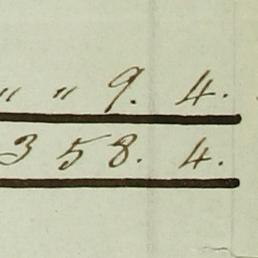 " " 9. 4.
3 5 8. 4.